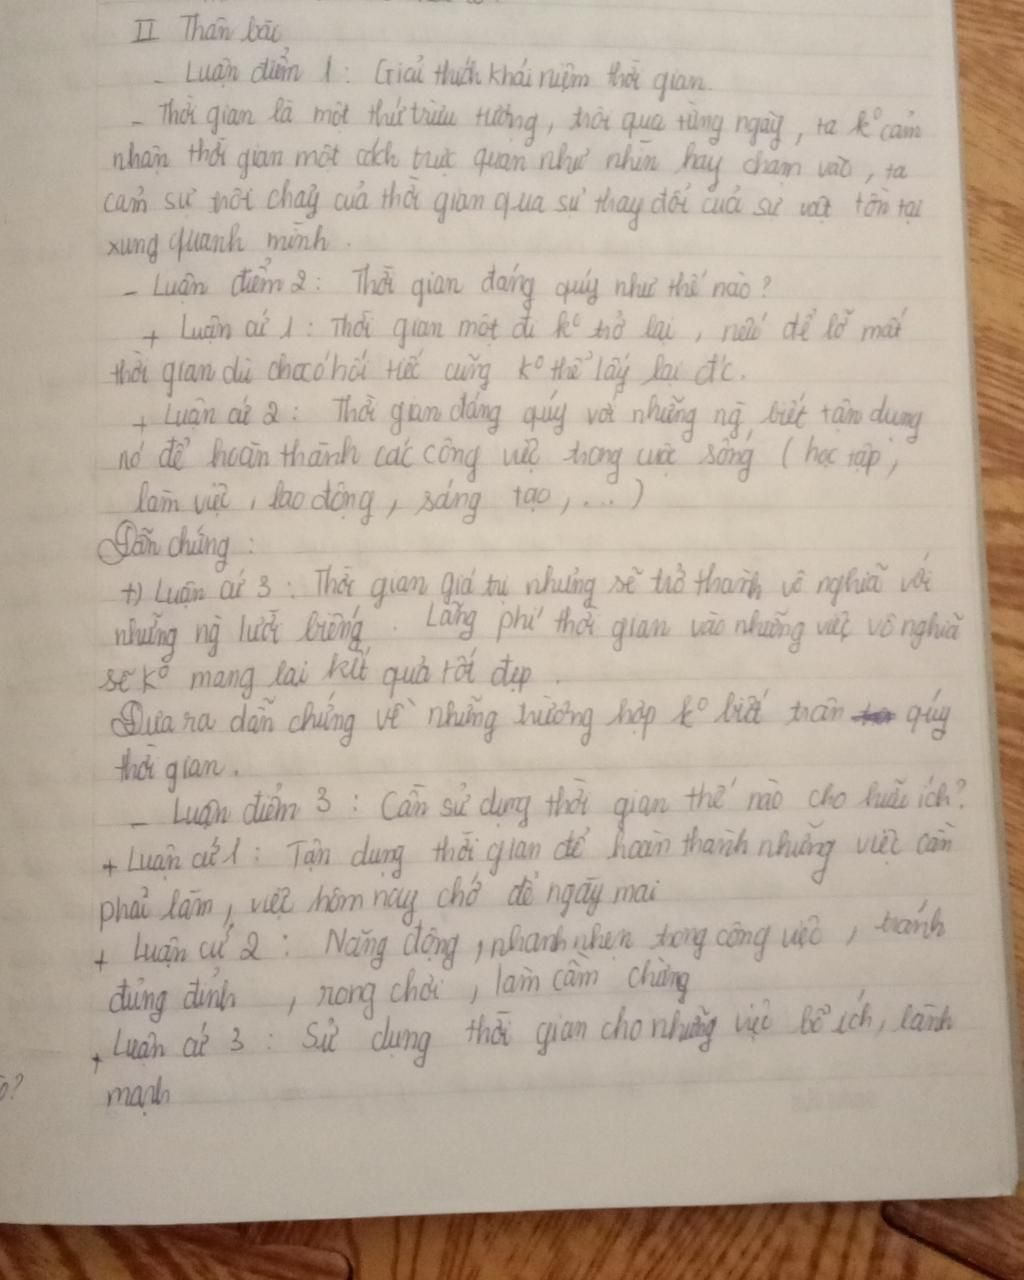 II Thân bài
- Luận điểm 1: Giải thích khái niệm thời gian.
- Thời gian là một thứ trừu tượng, trôi qua từng ngày, ta k° cảm
nhận thời gian một cách trực quan như nhìn hay chạm vào, ta
cảm sự trôi chảy của thời gian qua sự thay đổi của sự vật tồn tại
xung quanh mình.
- Luận điểm 2: Thời gian đáng quý như thế nào?
+ Luận cứ 1: Thời gian một đi k° trở lại, nếu để lỡ mất
thời gian dù cho có hối tiếc cũng k° thể lấy lại đ'c.
+ Luận cứ 2: Thời gian đáng quý với những ng biết tận dụng
nó để hoàn thành các công việc trong cuộc sống (học tập,
làm việc, lao động, sáng tạo,...)
Dẫn chứng:
+) Luận cứ 3: Thời gian giá trị nhưng sẽ trở thành vô nghĩa với
những ng lười biếng. Lãng phí thời gian vào những việc vô nghĩa
sẽ k° mang lại kết quả tốt đẹp.
Đưa ra dẫn chứng về những trường hợp k° biết trân quý
thời gian.
- Luận điểm 3: Cần sử dụng thời gian thế nào cho hữu ích?
+ Luận cứ 1: Tận dụng thời gian để hoàn thành những việc cần
phải làm, việc hôm nay chớ để ngày mai
+ Luận cứ 2: Năng động, nhanh nhẹn trong công việc, tránh
đủng đỉnh, rong chơi, làm cầm chừng
+ Luận cứ 3: Sử dụng thời gian cho những việc bổ ích, lành
mạnh